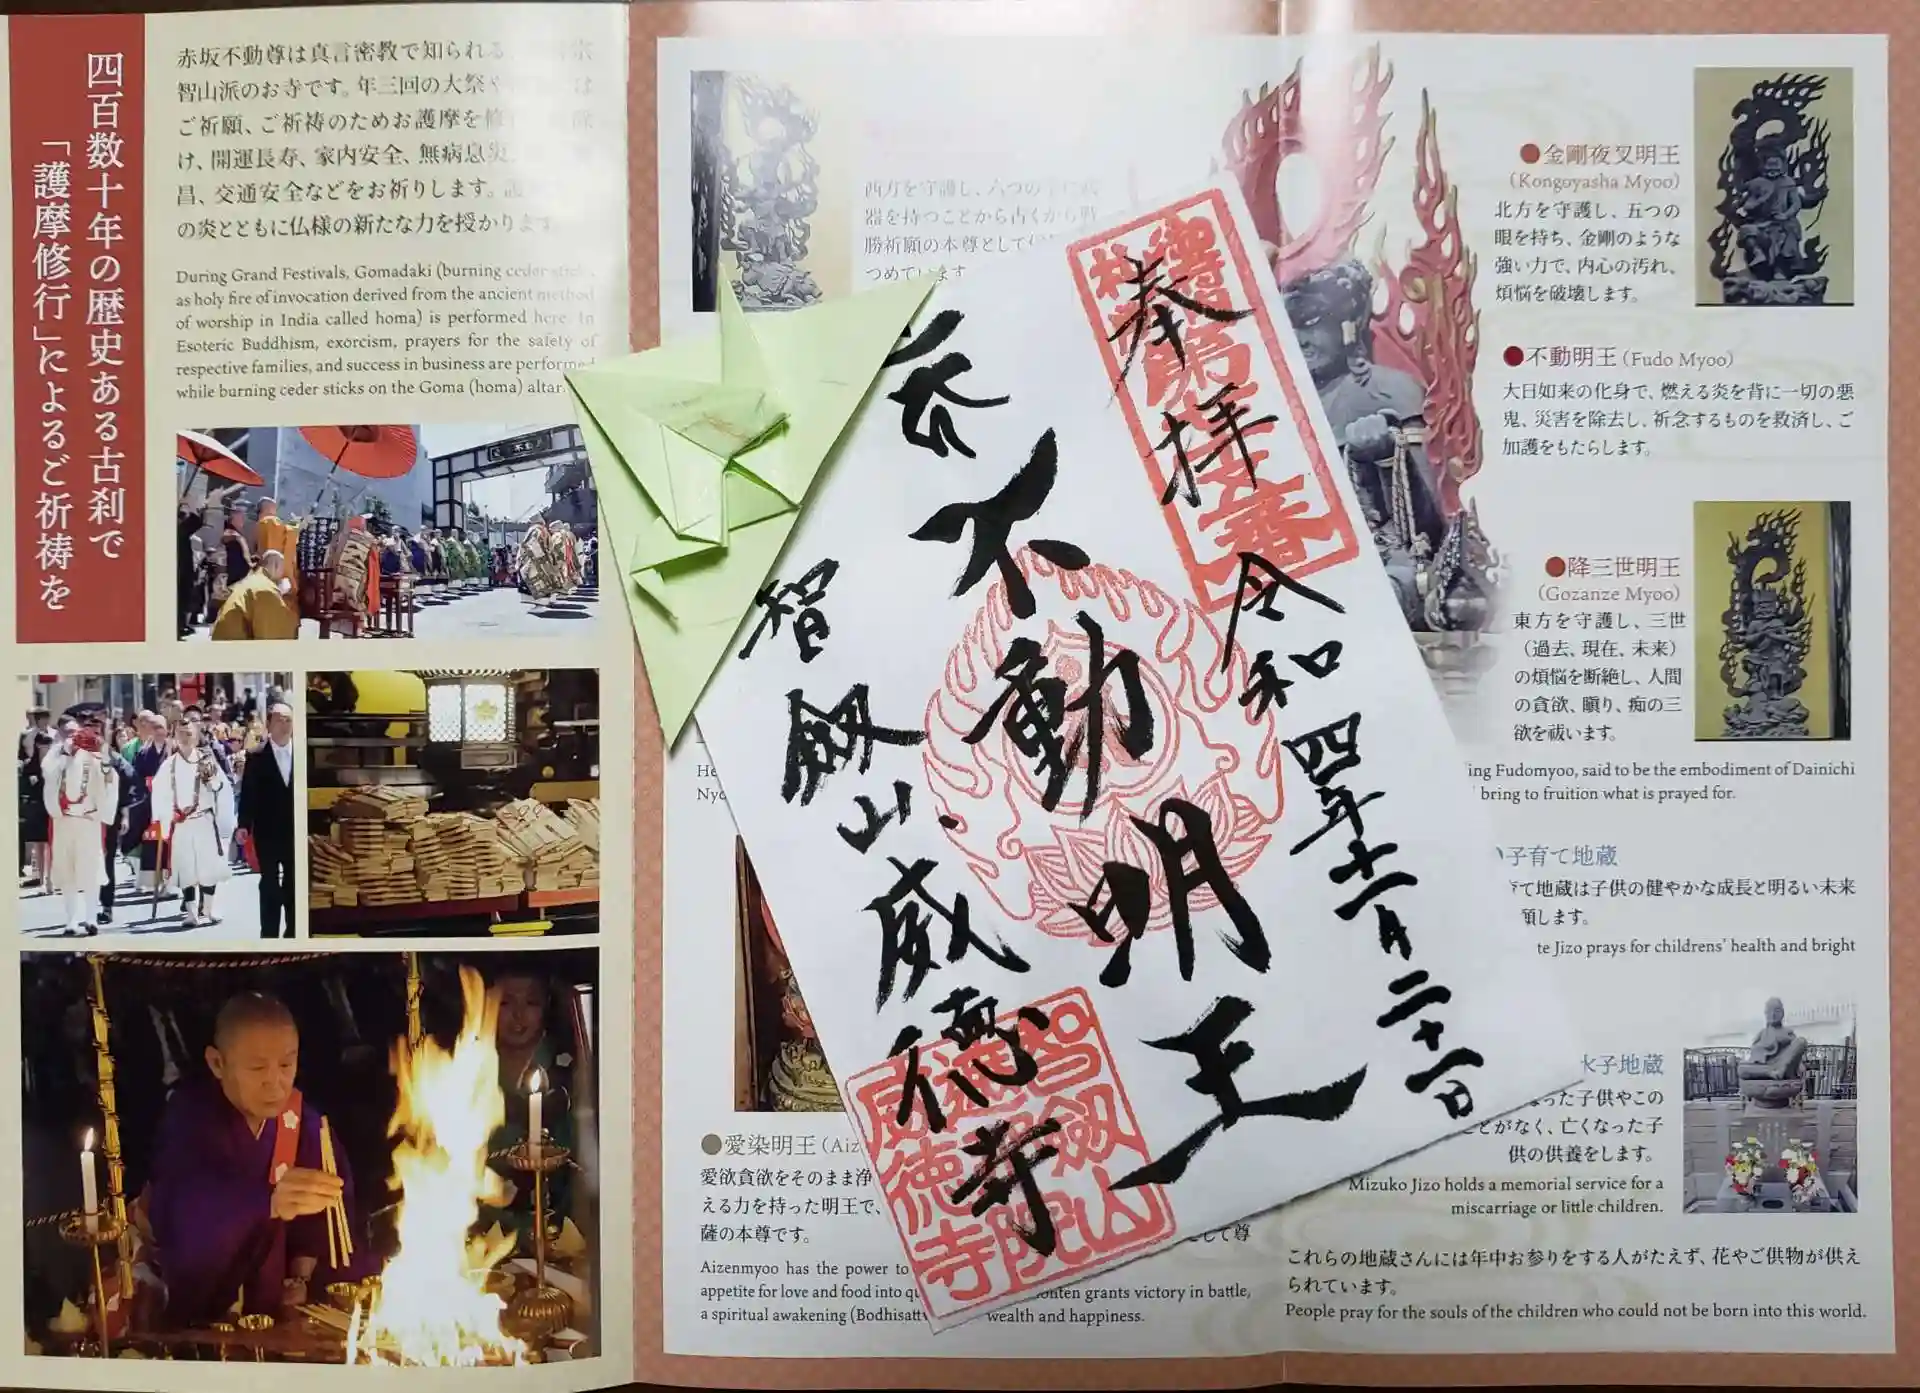 四百数十年の歴史ある古刹で
「護摩修行」によるご祈祷を
赤坂不動尊は真言密教で知られる
智山派のお寺です。年三回の大祭や
ご祈願、ご祈祷のためお護摩を修
け、開運長寿、家内安全、無病息災、
昌、交通安全などをお祈りします。護
の炎とともに仏様の新たな力を授かります
During Grand Festivals, Gomadaki (burning ceder sticks
as holy fire of invocation derived from the ancient method
of worship in India called homa) is performed here. In
Esoteric Buddhism, exorcism, prayers for the safety of
respective families, and success in business are performed
while burning ceder sticks on the Goma (homa) altar
西方を守護し、六つの
器を持つことから古くから戦
勝祈願の本尊として
つめています
奉拝
令和四年十一月二十一日
不動明王
智剱山威徳寺
智剱山
威徳寺
He
Nyo
●愛染明王(Aiz
愛欲貪欲をそのまま浄
える力を持った明王で、
薩の本尊です。
して尊
Aizenmyoo has the power to
appetite for love and food into qu
a spiritual awakening (Bodhisatt
onten grants victory in battle,
wealth and happiness.
●金剛夜叉明王
(Kongoyasha Myoo)
北方を守護し、五つの
眼を持ち、金剛のような
強い力で、内心の汚れ、
煩悩を破壊します。
●不動明王(Fudo Myoo)
大日如来の化身で、燃える炎を背に一切の悪
鬼、災害を除去し、祈念するものを救済し、ご
加護をもたらします。
●降三世明王
(Gozanze Myoo)
東方を守護し、三世
(過去、現在、未来)
の煩悩を断絶し、人間
の貪欲、瞋り、痴の三
欲を祓います。
ing Fudomyoo, said to be the embodiment of Dainichi
bring to fruition what is prayed for.
子育て地蔵
て地蔵は子供の健やかな成長と明るい未来
願します。
te Jizo prays for childrens' health and bright
水子地蔵
なった子供やこの
ことがなく、亡くなった子
供の供養をします。
Mizuko Jizo holds a memorial service for a
miscarriage or little children.
これらの地蔵さんには年中お参りをする人がたえず、花やご供物が供え
られています。
People pray for the souls of the children who could not be born into this world.